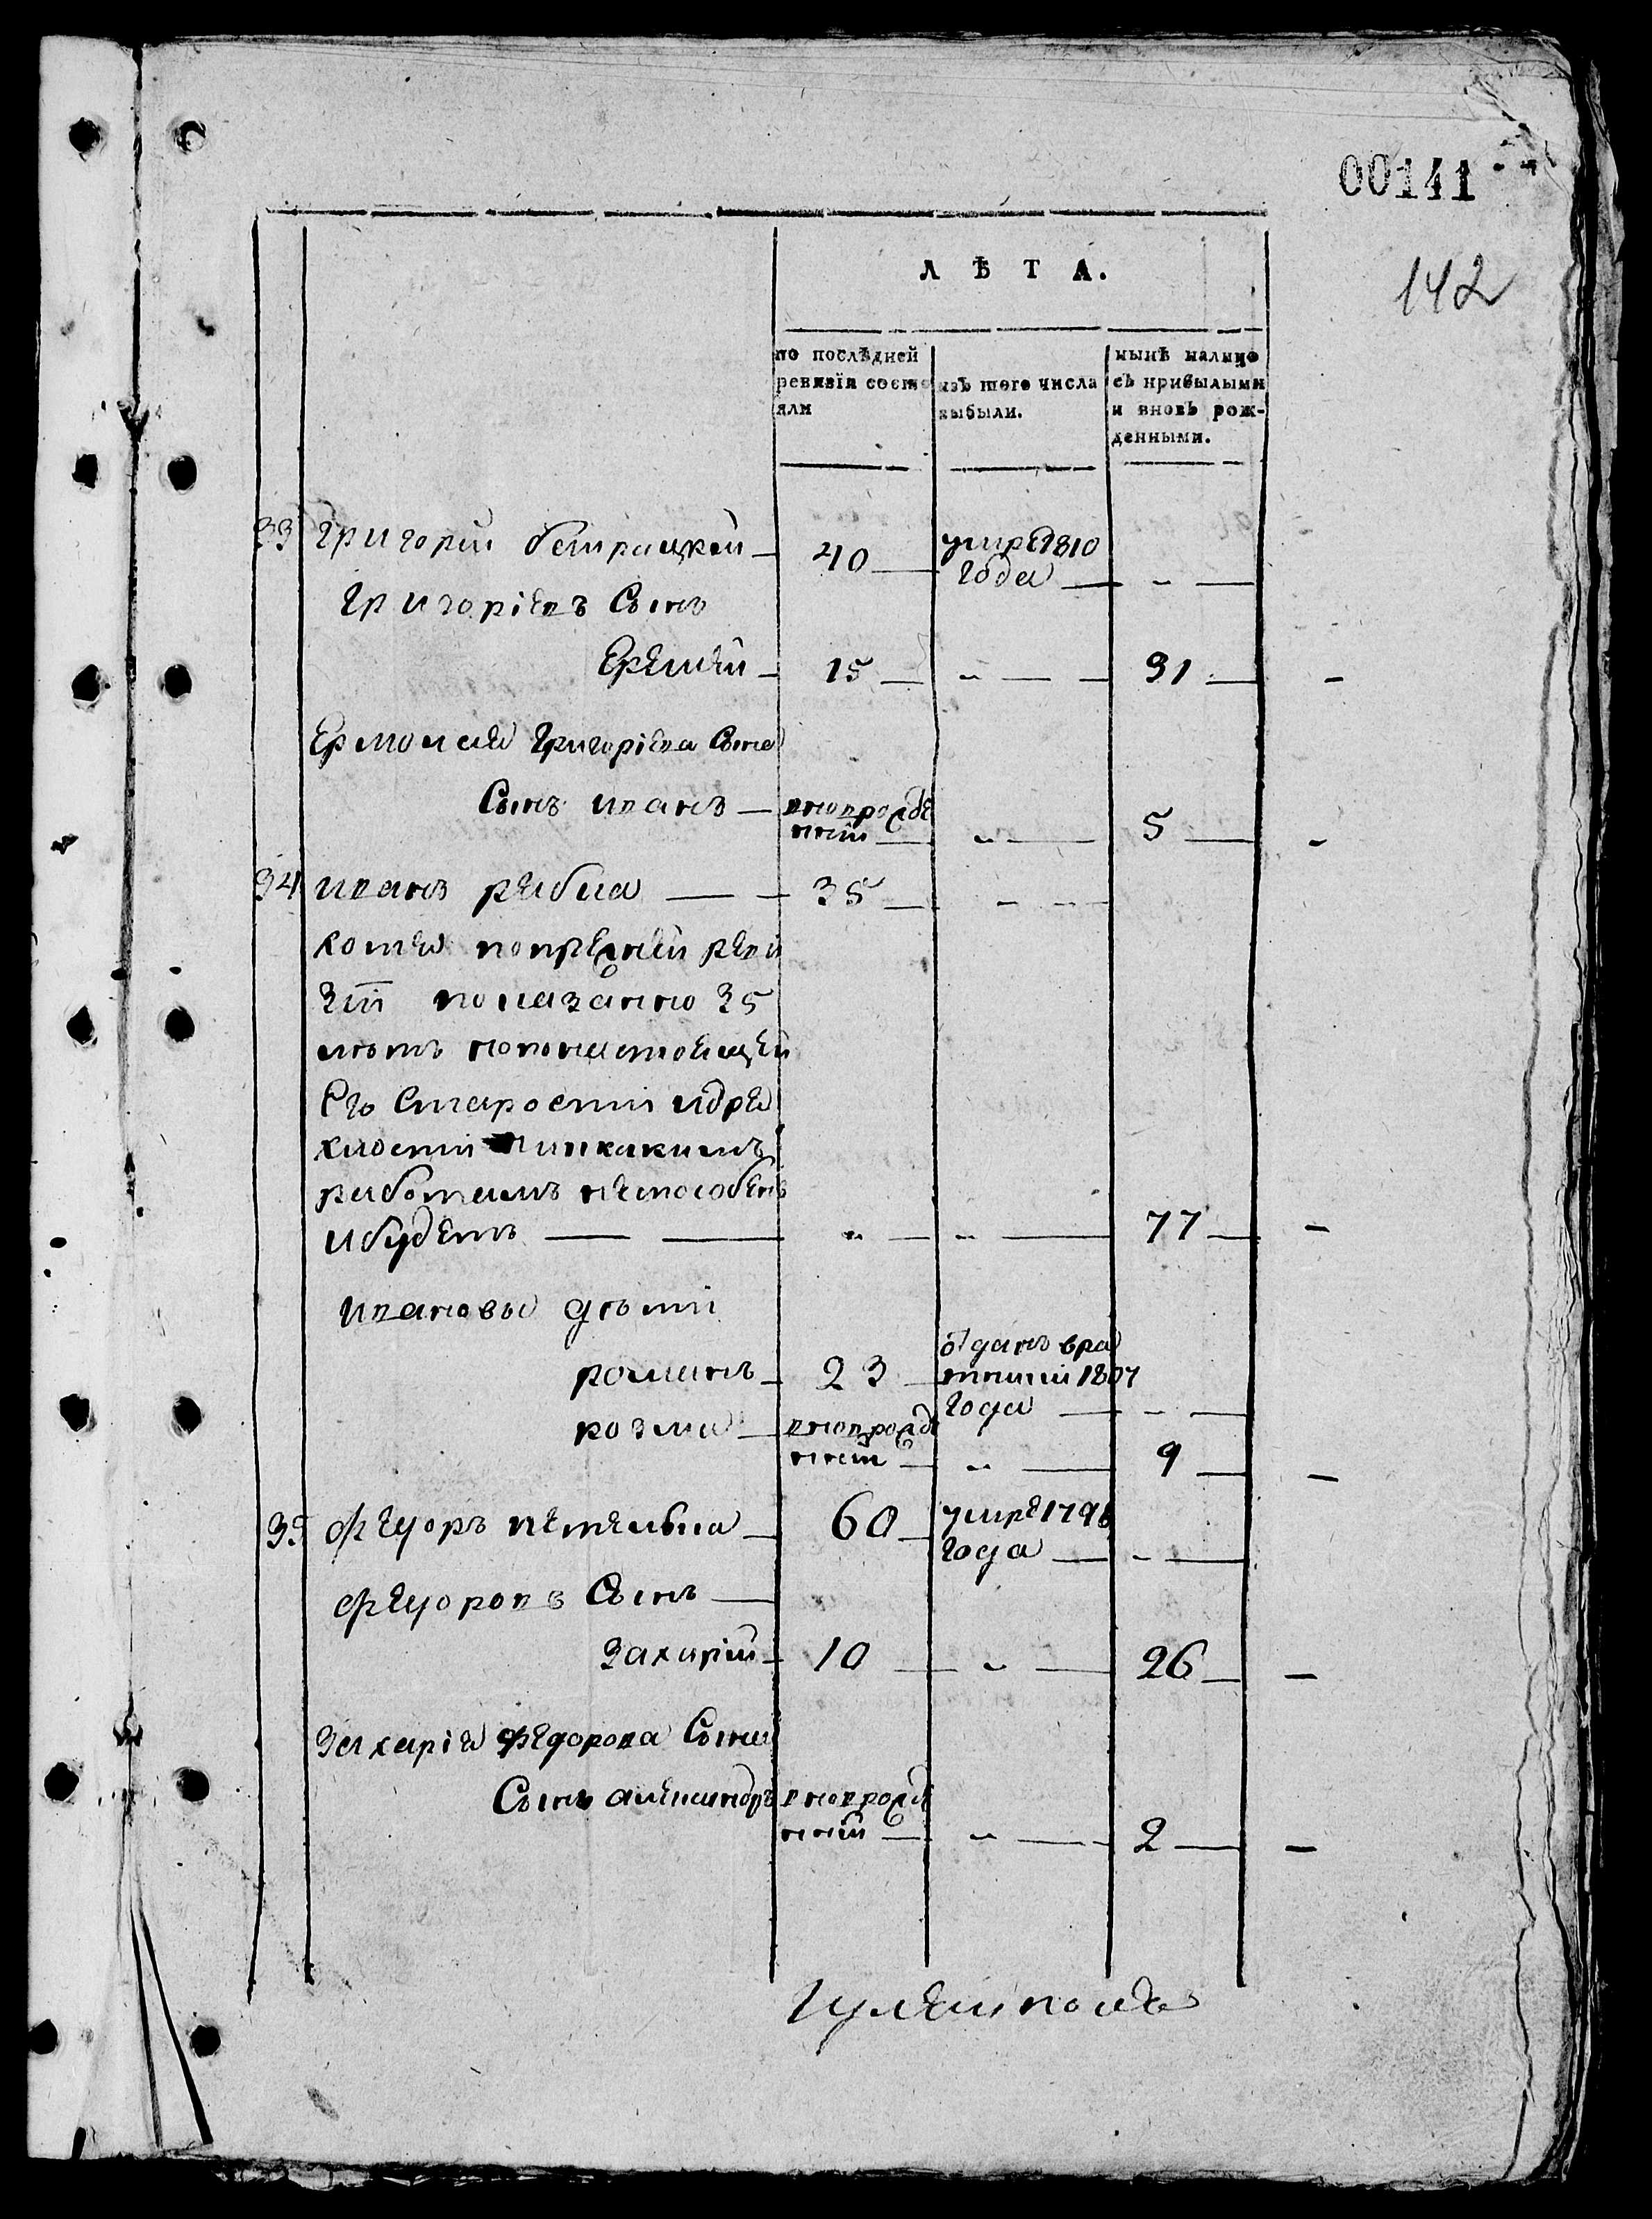 00141
142
ЛѢТА.
по послѣдней ревизіи состояли
изъ того числа выбыли.
нынѣ налицо съ прибылыми и вновь рожденными.
33 Григорій 40 умре 1810
года
Григоріевъ Сынъ
Еремѣй 15 31
Ермолая Григоріева Сына
Сынъ иванъ вновророжде
нный 5
34 иванъ рябка 35
хотя попрежней реви
зіи показанно 35
лѣтъ нопонастоящей
Его старости идрях
хлости никакимъ
работамъ неспособенъ
ибудетъ 77
ивановы дѣти
романъ 23 отданъ врѣ
крутии 1807
года
козма вноврожде
нный 9
35 Федоръ петелька 60 умре 1796
года
Федоровъ Сынъ
Захарій 10 26
Захарія Федорова Сына
Сынъ александръ вноврожде
нный 2